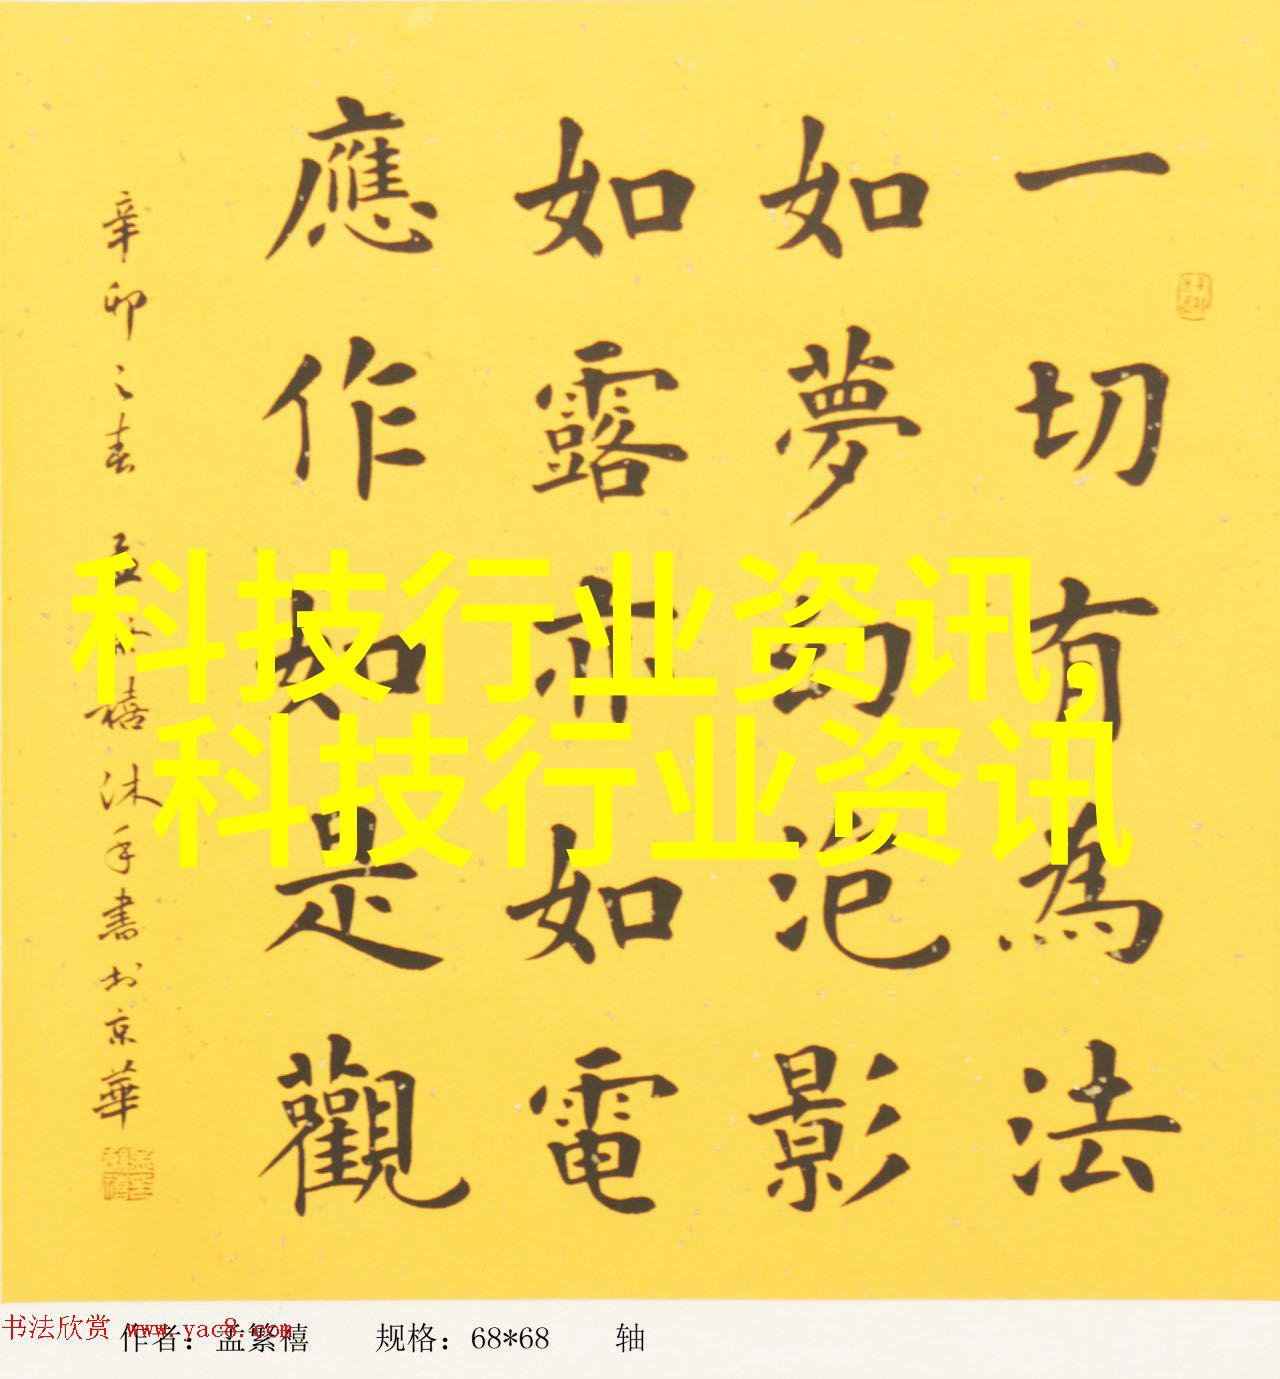 一切有為法
如夢幻泡影
如露亦如電
應作如是觀
辛卯之春 孟繁禧沐手書於京華
科技行业资讯,
科技行业资讯
书法欣赏 www.yac8.com
作者：孟繁禧 规格：68*68 轴